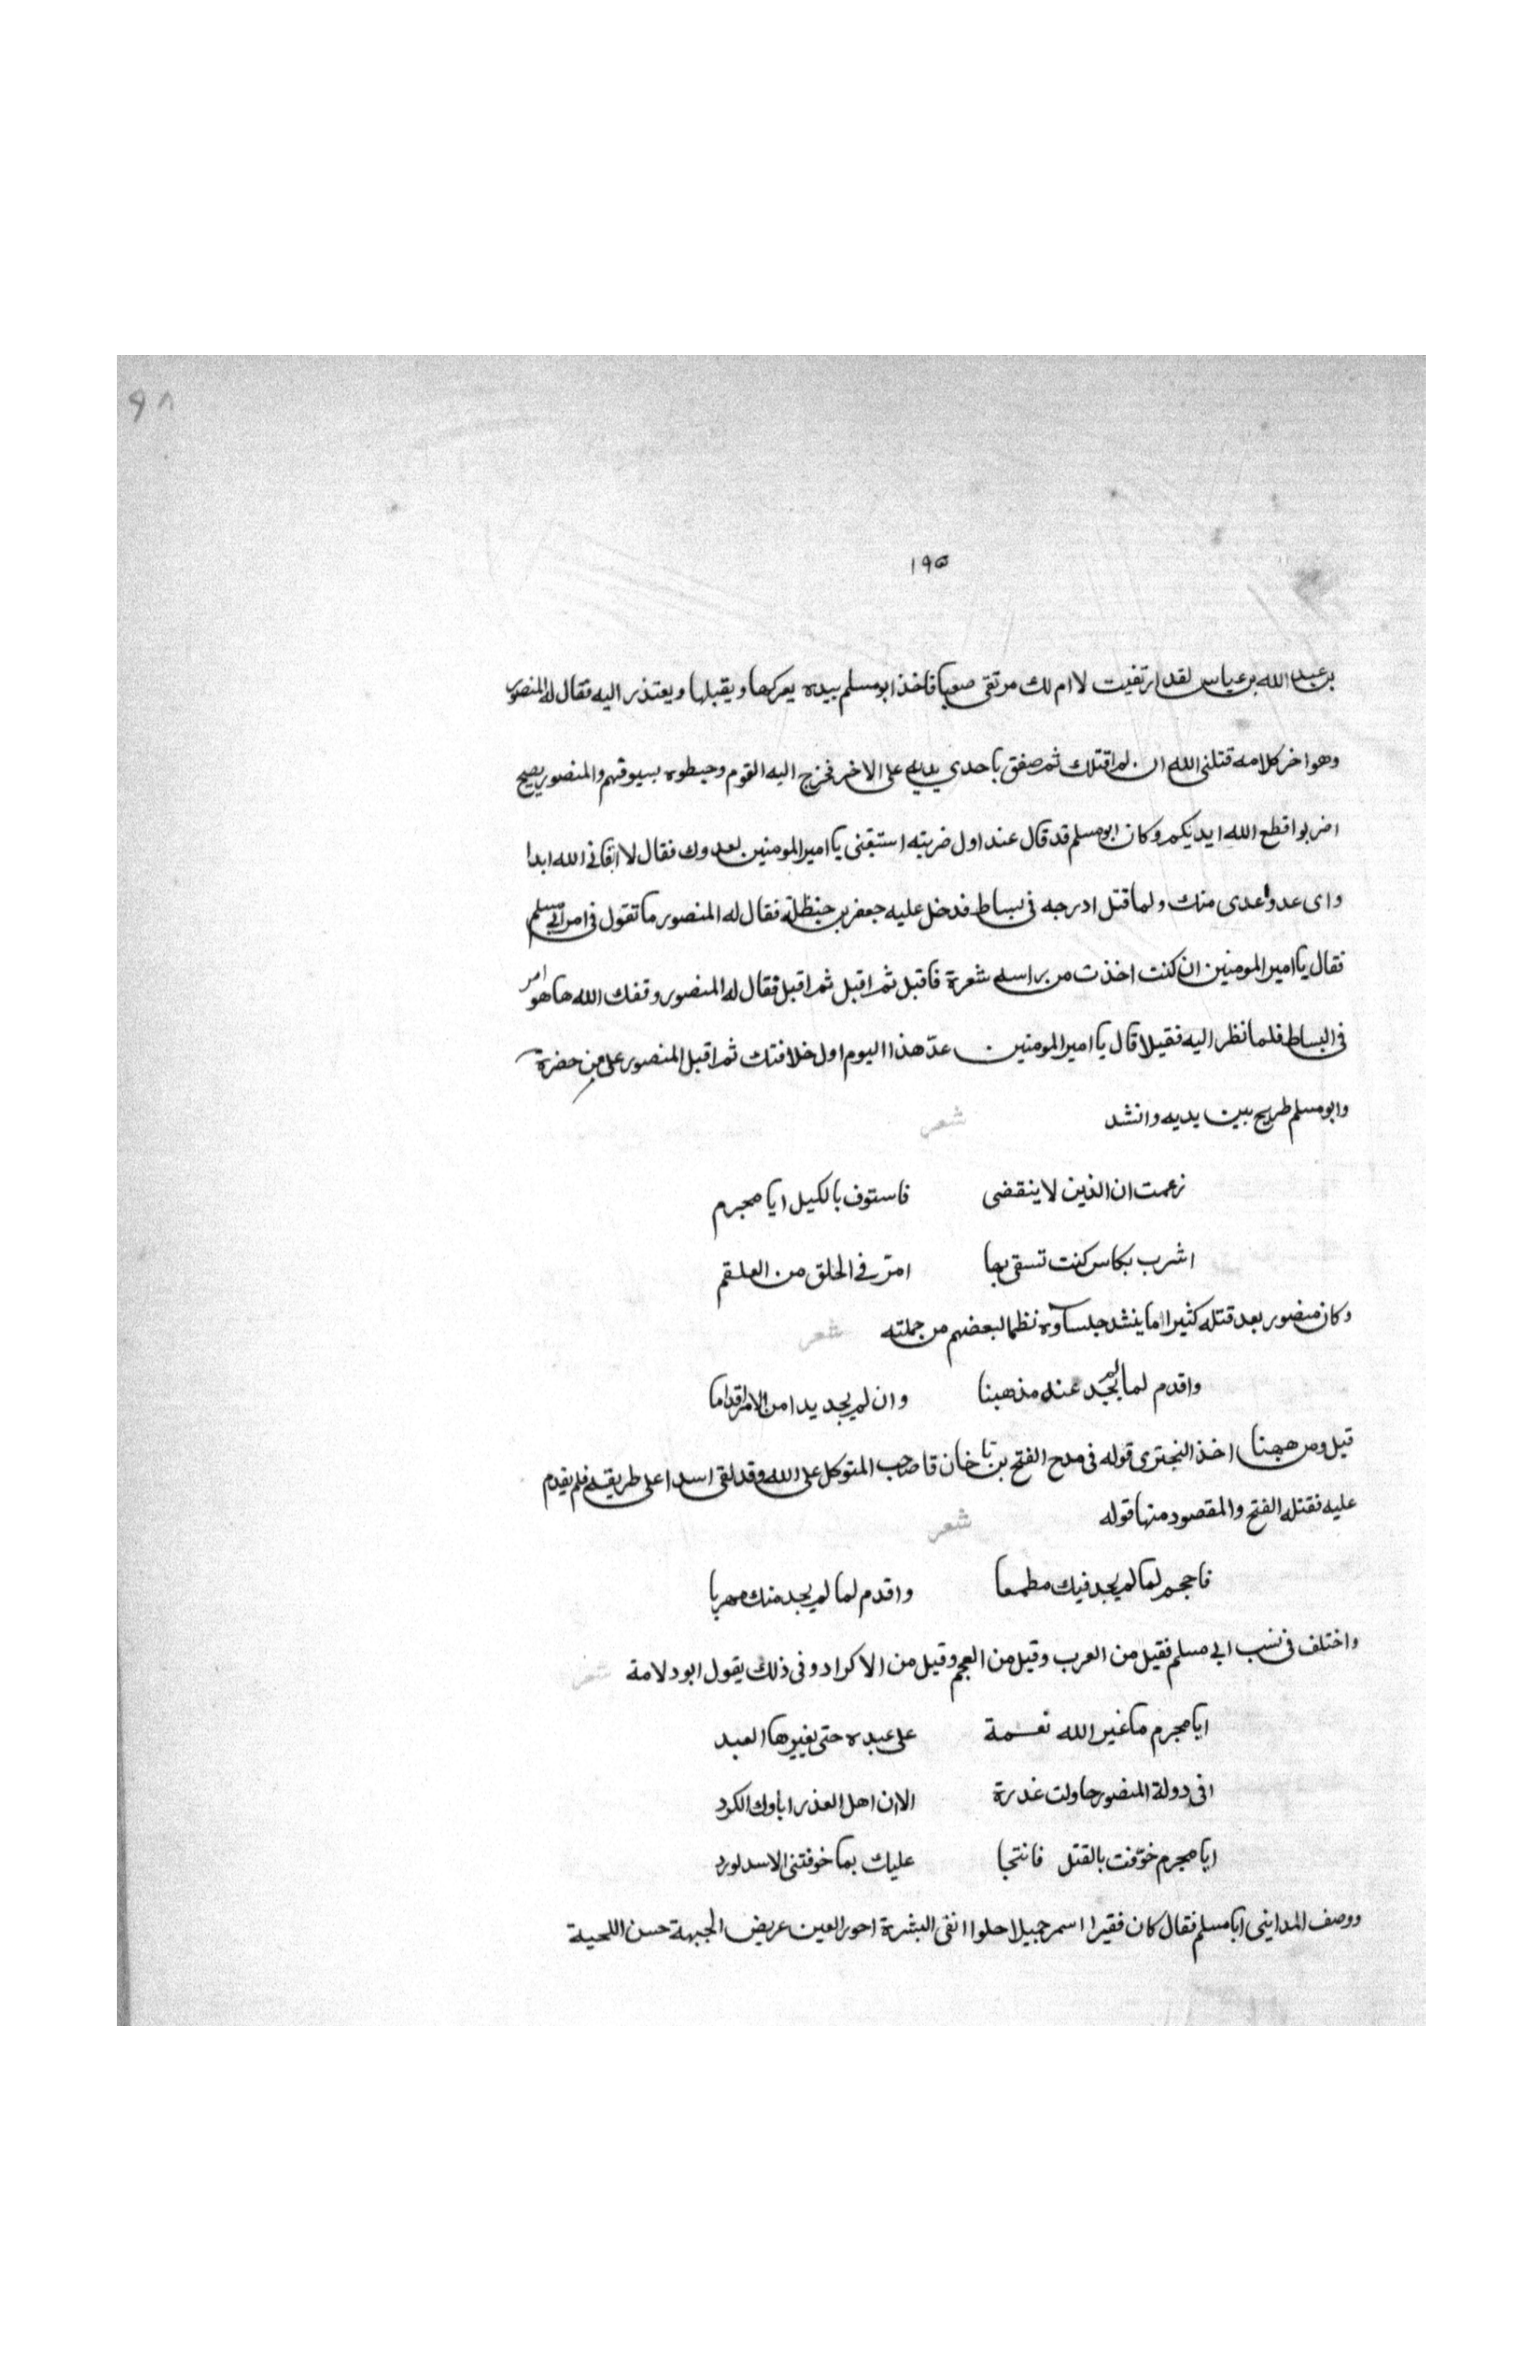 ٩٨
١٩٥
بن عبد الله بن عباس لقد ارتقيت لا ام لك مرتقى صعبا فاخذ ابو مسلم بيده يعركها ويقبلها ويعتذر اليه فقال له المنصور
وهو اخر كلامه قتلنى الله ان لم اقتلك ثم صفق باحدي يديه على الاخر فخرج اليه القوم وخبطوه بسيوفهم والمنصور يصيح
اضربوا قطع الله ايديكم وكان ابو مسلم قد قال عند اول ضربته استبقنى يا امير المومنين لعدوك فقال لا ابقانى الله ابدا
واى عدو اعدى منك ولما قتل ادرجه فى بساط فدخل عليه جعفر بن حنظلة فقال له المنصور ما تقول فى امر ابى مسلم
فقال يا امير المومنين ان كنت اخذت من براسه شعرة فاقبل ثم اقبل ثم اقبل فقال له المنصور وفقك الله ها هو امر
فى البساط فلما نظر اليه فقيلا قال يا امير المومنين عدّ هذا اليوم اول خلافتك ثم اقبل المنصور على من حضرة
وابو مسلم طريح بين يديه وانشد شعر
زعمت ان الذين لا ينقضى فاستوف بالكيل ايا مجرم
اشرب بكاس كنت تسقى بها امرّ في الحلق من العلقم
وكان منصور بعد قتله كثيرا ما ينشد جلساوه نظما لبعضهم من جملته شعر
واقدم لما لم يجد عنده مذهبنا وان لم يجد يدا من الامر اقداما
قيل ومن ههنا اخذ البختري قوله فى مدح الفتح بن خاقان صاحب المتوكل على الله وقد لقى اسدا على طريقه فلم يقدم
عليه فقتله الفتح والمقصود منها قوله شعر
فاحجم لما لم يجد فيك مطمعا واقدم لما لم يجد منك مهربا
واختلف فى نسب ابي مسلم فقيل من العرب وقيل من العجم وقيل من الاكراد وفى ذلك يقول ابو دلامة شعر
ايا مجرم ما غير الله نعمة على عبده حتى يغيرها العبد
افى دولة المنصور حاولت غدرة الا ان اهل الغدر اباوك الكرد
ايا مجرم خوّفت بالقتل فانتحا عليك بما خوفتنى الاسد لورد
ووصف المداينى ابا مسلم فقال كان فقيرا اسمر جميلا حلوا انقى البشرة احور العين عريض الجبهة حسن اللحية